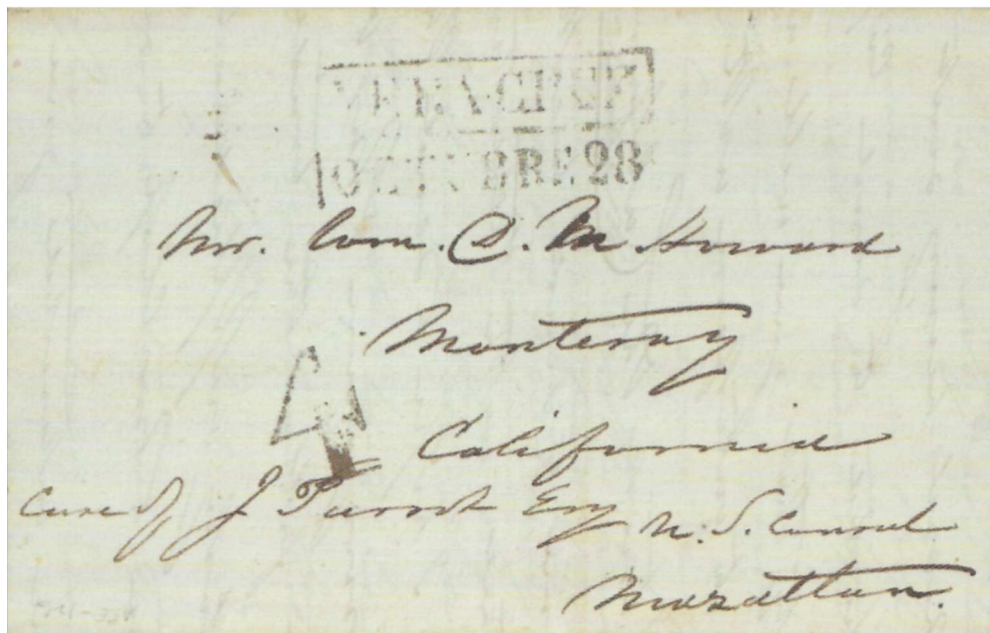 VERA CRUZ
OCTUBRE 28
Mr. Wm. D. M Howard
Monteray
4
California
Care of J Parrott Esq U. S. Consul
Mazattan.